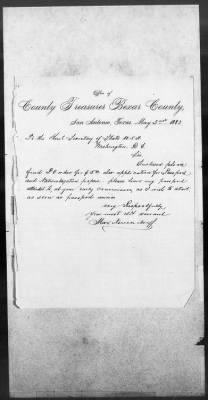 Office of
County Treasurer Bexar County,
San Antonio, Texas, May 3rd 1883
To the Hon. Secretary of State U.S.A.
Washington, D. C.
Sir
Enclosed please
find P.O. order for $5.00 also application for Passport
and Naturalization papers. please have my passport
at your early convenience as I will to start
as soon as passport comes
Very Respectfully
Your most obt servant